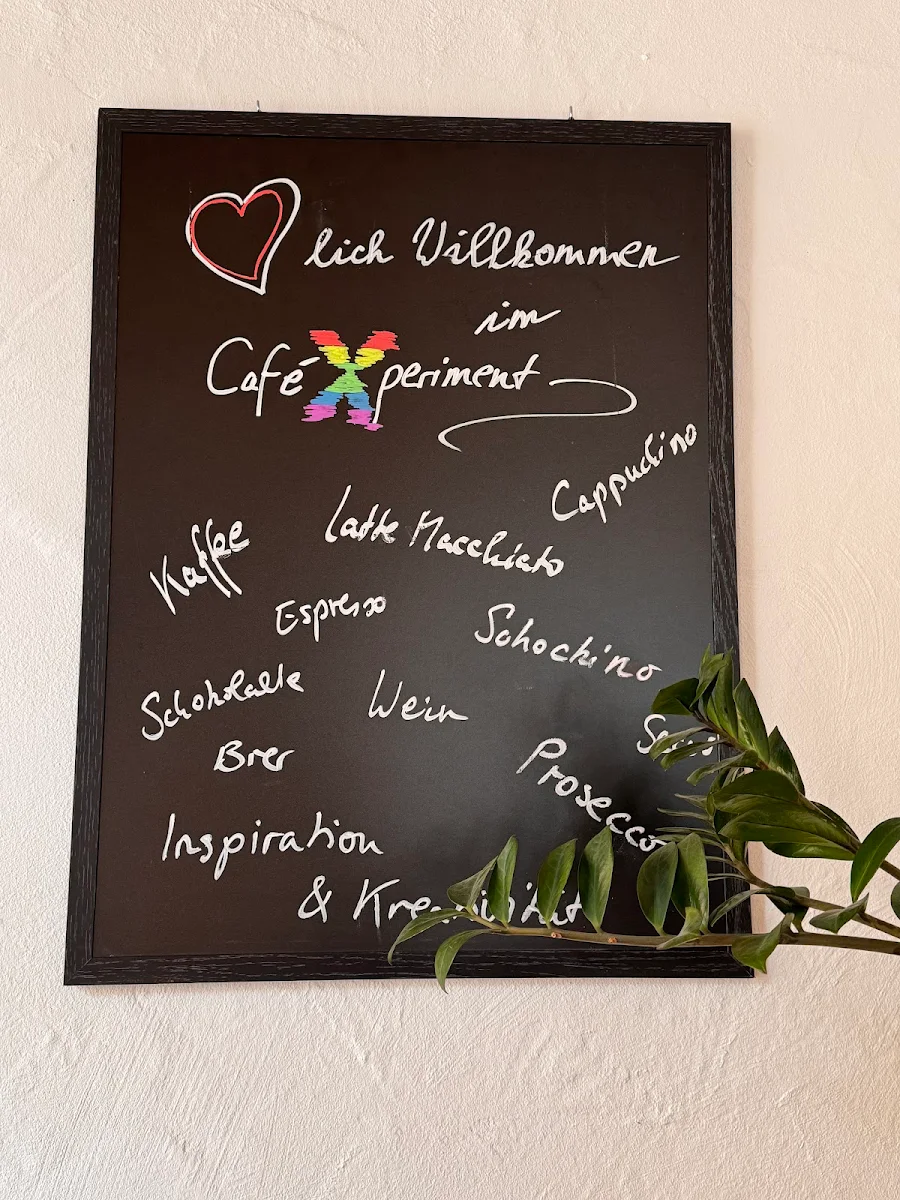 lich Willkommen
im
Café Xperiment
Cappuccino
Latte Macchiato
Kaffee
Espresso
Schochino
Schokolade
Wein
Bier
Prosecco
Inspiration
& Kreativität